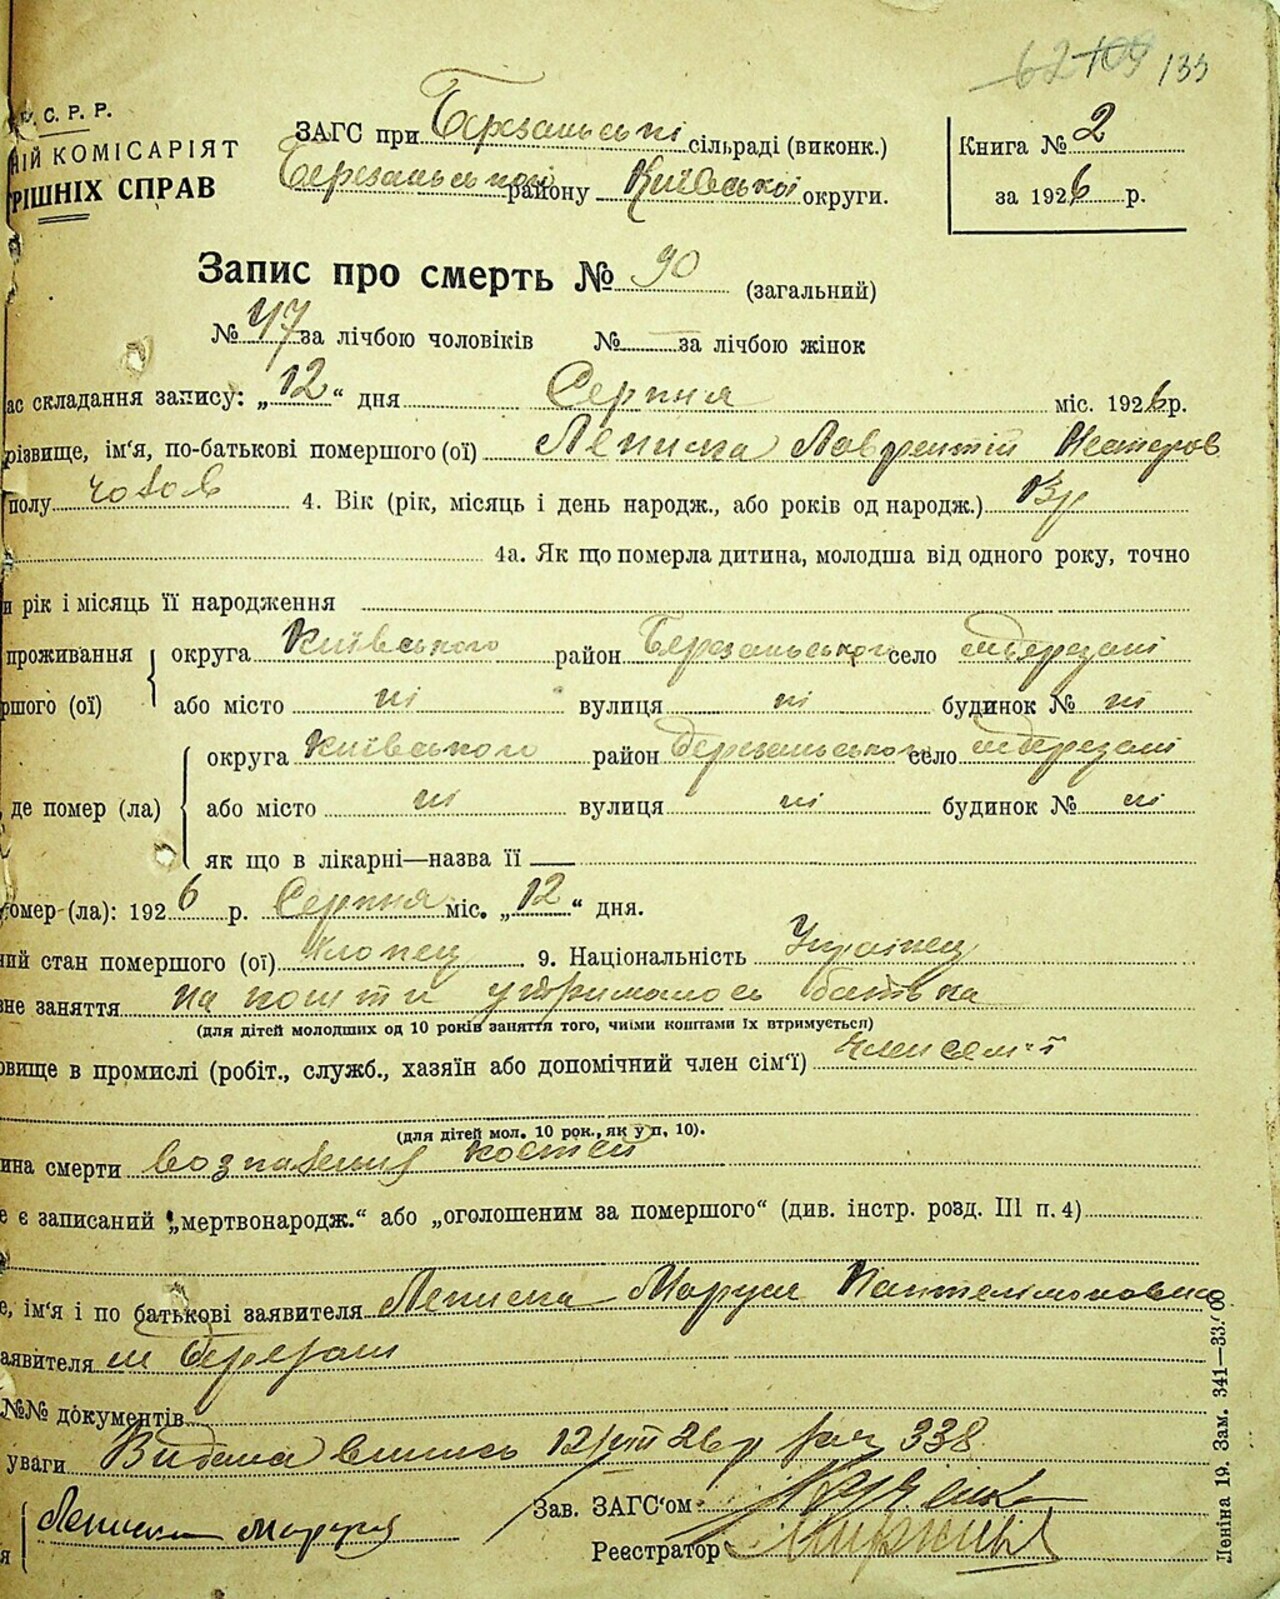 62 109 135
У. С. Р. Р.
НІЙ КОМІСАРІЯТ
РІШНІХ СПРАВ
ЗАГС при Березанські сільраді (виконк.)
Березанського району Київської округи.
Книга № 2
за 1926 р.
Запис про смерть № 90 (загальний)
№ 47 за лічбою чоловіків № — за лічбою жінок
ас складання запису: „12“ дня Серпня міс. 1926 р.
різвище, ім'я, по-батькові помершого (ої) Леписка Лаврентій Нестеров
полу чолов 4. Вік (рік, місяць і день народж., або років од народж.)
4а. Як що померла дитина, молодша від одного року, точно
и рік і місяць її народження
проживання округа Київського район Березанського село мБерезані
ршого (ої) або місто ні вулиця ні будинок № ні
округа Київського район Березанського село мБерезані
, де помер (ла) або місто ні вулиця ні будинок № ні
як що в лікарні—назва її
омер (ла): 1926 р. Серпня міс. „12“ дня.
ний стан помершого (ої) хлопец 9. Національність Українец
вне заняття на кошти утрималось батька
(для дітей молодших од 10 років заняття того, чиїми коштами їх втримується)
овище в промислі (робіт., служб., хазяїн або допомічний член сім'ї) член семї
(для дітей мол. 10 рок., як у п, 10).
ина смерти возпаления костей
е є записаний „мертвонародж.“ або „оголошеним за помершого“ (див. інстр. розд. III п. 4)
е, ім'я і по батькові заявителя Леписка Маруся Пантелімоновна
аявителя м Березані
№№ документів
уваги Видана випись 12/VIII 26 р 338
Леписка Маруся
Зав. ЗАГС'ом
Реєстратор
Леніна 19. Зам. 341—33.000